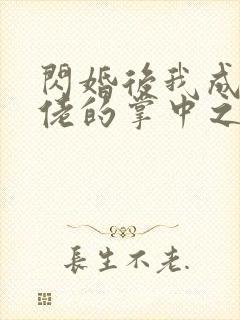 閃婚後我成
佬的掌中之
長生不老.